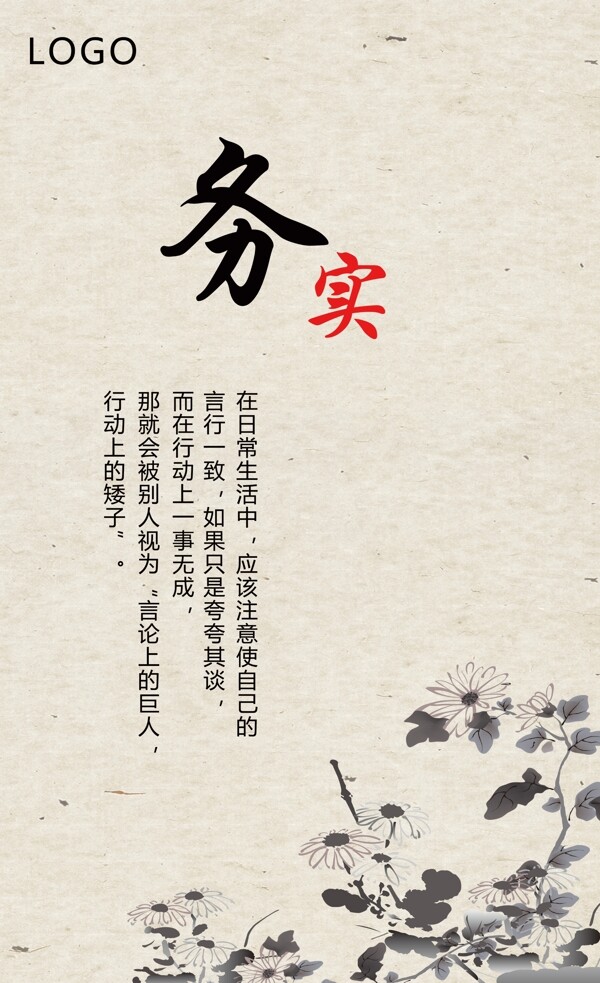 LOGO
务
实
在日常生活中，应该注意使自己的
言行一致，如果只是夸夸其谈，
而在行动上一事无成，
那就会被别人视为“言论上的巨人，
行动上的矮子”。